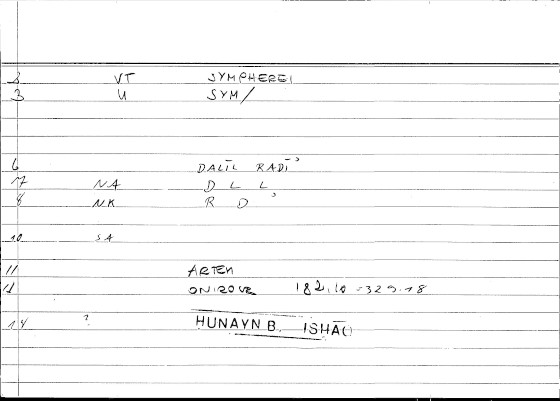 2 VT SYMPHEREI
3 U SYM/
6 DALĪL RADĪʾ
7 NA D L L
8 NK R D ʾ
10 SA
11 ARTEM
12 ONIROCR 182.10 = 329.18
14 ? HUNAYN B. ISHĀQ